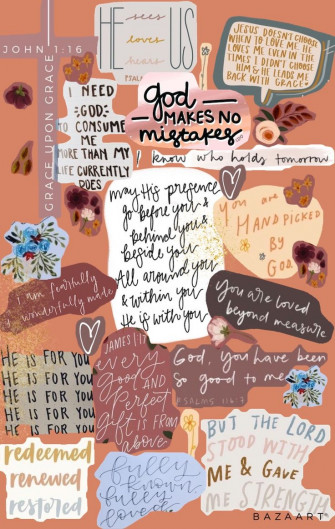 JOHN 1:16
GRACE UPON GRACE
HE
sees
loves
hears
US
PSALM
JESUS DOESN'T CHOOSE
WHEN TO LOVE ME. HE
LOVES ME EVEN IN THE
TIMES I DIDN'T CHOOSE
HIM & HE LEADS ME
BACK WITH GRACE.
I NEED
GOD
TO CONSUME
ME
MORE THAN MY
LIFE CURRENTLY
DOES
god
MAKES NO
mistakes
I know who holds tomorrow
may His presence
go before you &
behind you &
beside you
All around you
& within you
He is with you
you are
HANDPICKED
BY
GOD
I am fearfully
& wonderfully made
You are loved
beyond measure
HE IS FOR YOU
HE IS FOR YOU
HE IS FOR YOU
HE IS FOR YOU
HE IS FOR YOU
JAMES 1:17
every
Good AND
Perfect
gift IS FROM
above
God, you have been
so good to me
PSALMS 116:7
redeemed
renewed
restored
fully
known
fully
loved
BUT THE LORD
STOOD WITH
ME & GAVE
ME STRENGTH
BAZAART